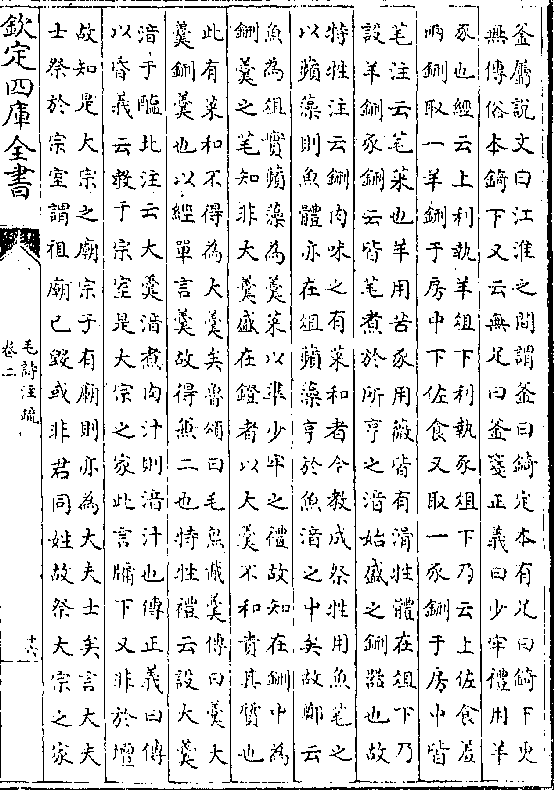 釜屬說文曰江淮之間謂釜曰錡定本有足曰錡下更
無傳俗本錡下又云無足曰釜箋正義曰少牢禮用羊
豕也經云上利執羊俎下利執豕俎下乃云上佐食羞
兩鉶取一羊鉶于房中下佐食又取一豕鉶于房中皆
芼注云芼菜也羊用苦豕用薇皆有滑牲體在俎下乃
設羊鉶豕鉶云皆芼煮於所亨之湆始盛之鉶器也故
特牲注云鉶肉味之有菜和者今教成祭牲用魚芼之
以蘋藻則魚體亦在俎蘋藻亨於魚湆之中矣故鄭云
魚為俎實蘋藻為羹菜以準少牢之禮故知在鉶中為
鉶羹之芼知非大羹盛在鐙者以大羹不和貴其質也
此有菜和不得為大羹矣魯頌曰毛炰胾羹傳曰羹大
羹鉶羹也以經單言羹故得兼二也特牲禮云設大羹
湆于醢北注云大羹湆煮肉汁則湆汁也傳正義曰傳
以昏義云教于宗室是大宗之家此言牖下又非於壇
故知是大宗之廟宗子有廟則亦為大夫士矣言大夫
士祭於宗室謂祖廟已毀或非君同姓故祭大宗之家
欽定四庫全書
毛詩注疏
卷二
十六